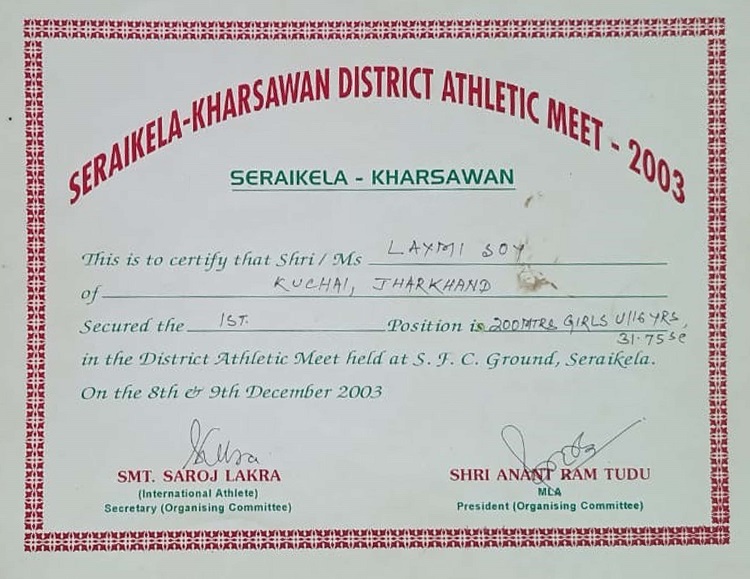 SERAIKELA-KHARSAWAN DISTRICT ATHLETIC MEET - 2003
SERAIKELA - KHARSAWAN
This is to certify that Shri / Ms LAXMI SOY
of KUCHAI, JHARKHAND
Secured the 1ST. Position is 200MTRS GIRLS U/16 YRS,
31.75 se
in the District Athletic Meet held at S. F. C. Ground, Seraikela.
On the 8th & 9th December 2003
SMT. SAROJ LAKRA
(International Athlete)
Secretary (Organising Committee)
SHRI ANANT RAM TUDU
MLA
President (Organising Committee)